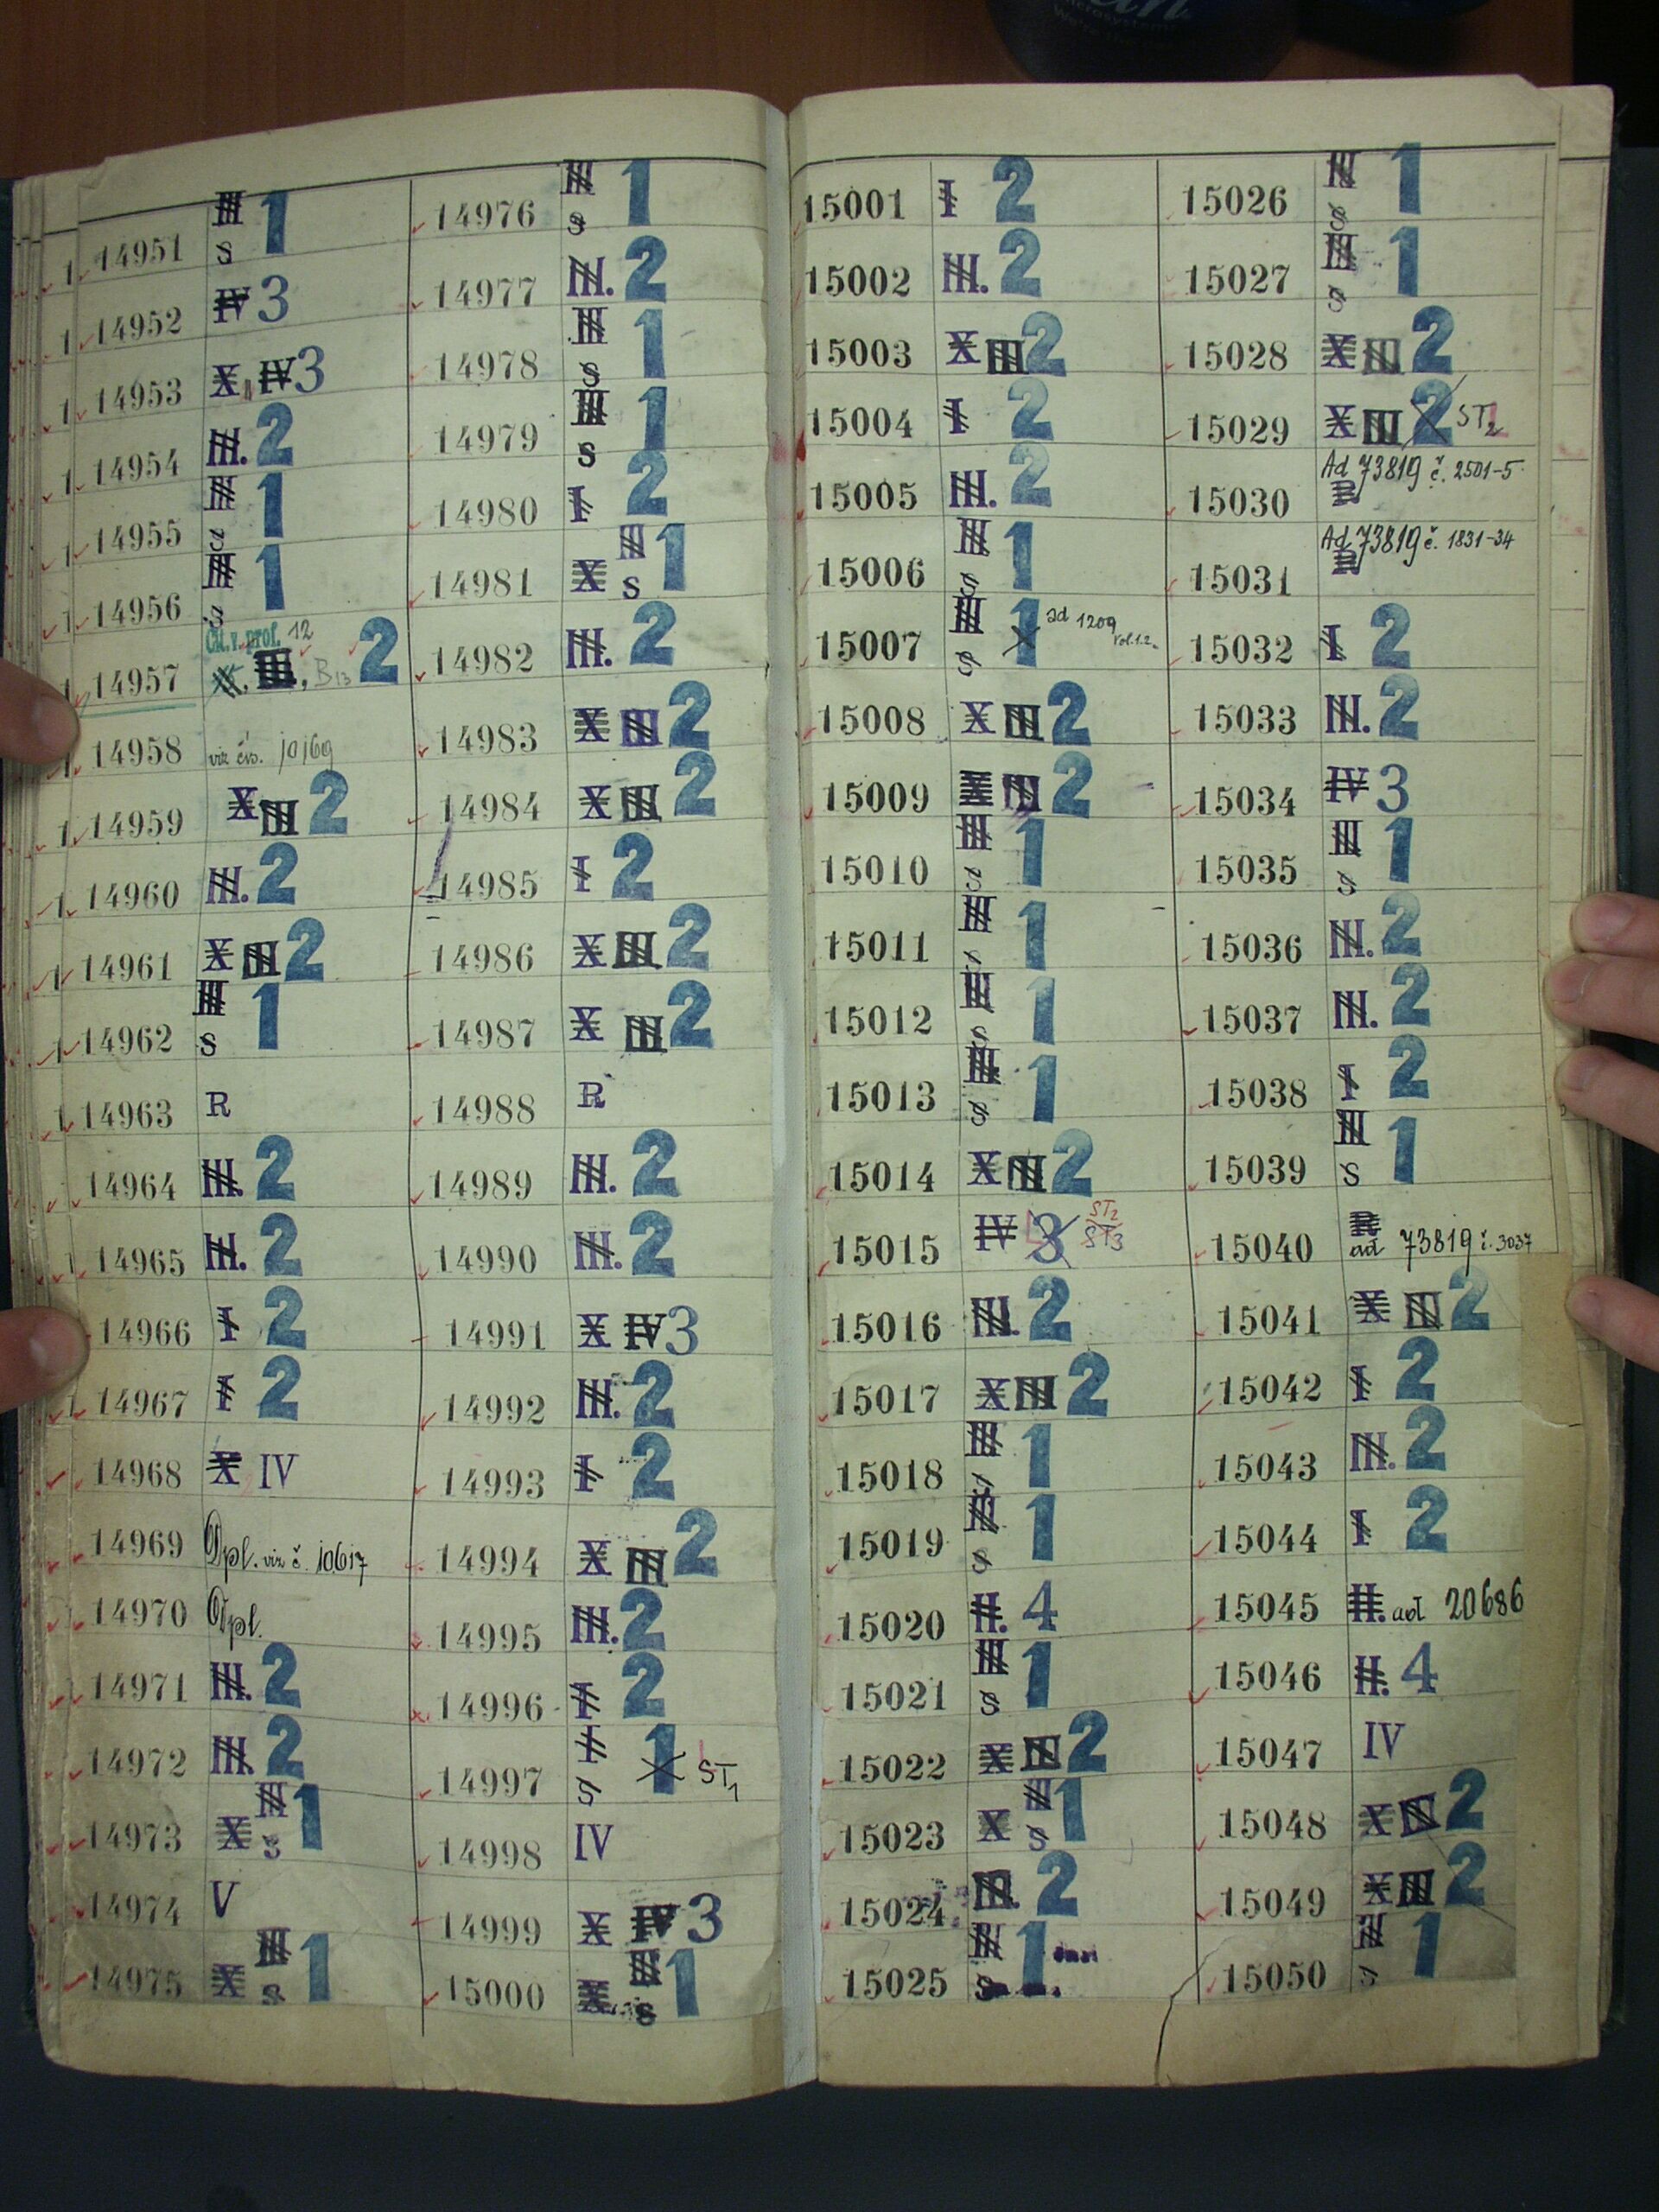 14951 III S 1
14952 IV 3
14953 X IV 3
14954 III. 2
14955 III S 1
14956 III S 1
14957 III. B13 2
14958 viz čís. 10169
14959 X III 2
14960 III. 2
14961 X III 2
14962 III S 1
14963 R
14964 III. 2
14965 III. 2
14966 I 2
14967 I 2
14968 X IV
14969 Dpl. viz č. 10617
14970 Dpl.
14971 III. 2
14972 III. 2
14973 X III S 1
14974 V
14975 X III S 1
14976 III S 1
14977 III. 2
14978 III S 1
14979 III S 1
14980 I 2
14981 X III S 1
14982 III. 2
14983 X III 2
14984 X III 2
14985 I 2
14986 X III 2
14987 X III 2
14988 R
14989 III. 2
14990 III. 2
14991 X IV 3
14992 III. 2
14993 I 2
14994 X III 2
14995 III. 2
14996 I 2
14997 I S 1 ST1
14998 IV
14999 X IV 3
15000 X III S 1
15001 I 2
15002 III. 2
15003 X III 2
15004 I 2
15005 III. 2
15006 III S 1
15007 III S 1 ad 1209 vol.1.2.
15008 X III 2
15009 X III 2
15010 III S 1
15011 III S 1
15012 III S 1
15013 III S 1
15014 X III 2
15015 IV 3 ST2 ST3
15016 III. 2
15017 X III 2
15018 III S 1
15019 III S 1
15020 II. 4
15021 III S 1
15022 X III 2
15023 X III S 1
15024 III. 2
15025 III S 1
15026 III S 1
15027 III S 1
15028 X III 2
15029 X III 2 ST2
15030 Ad 73819 č. 2501-5 R
15031 Ad 73819 č. 1831-34 R
15032 I 2
15033 III. 2
15034 IV 3
15035 III S 1
15036 III. 2
15037 III. 2
15038 I 2
15039 III S 1
15040 R ad 73819 č. 3037
15041 X III 2
15042 I 2
15043 III. 2
15044 I 2
15045 II. ad 20686
15046 II. 4
15047 IV
15048 X III 2
15049 X III 2
15050 III S 1